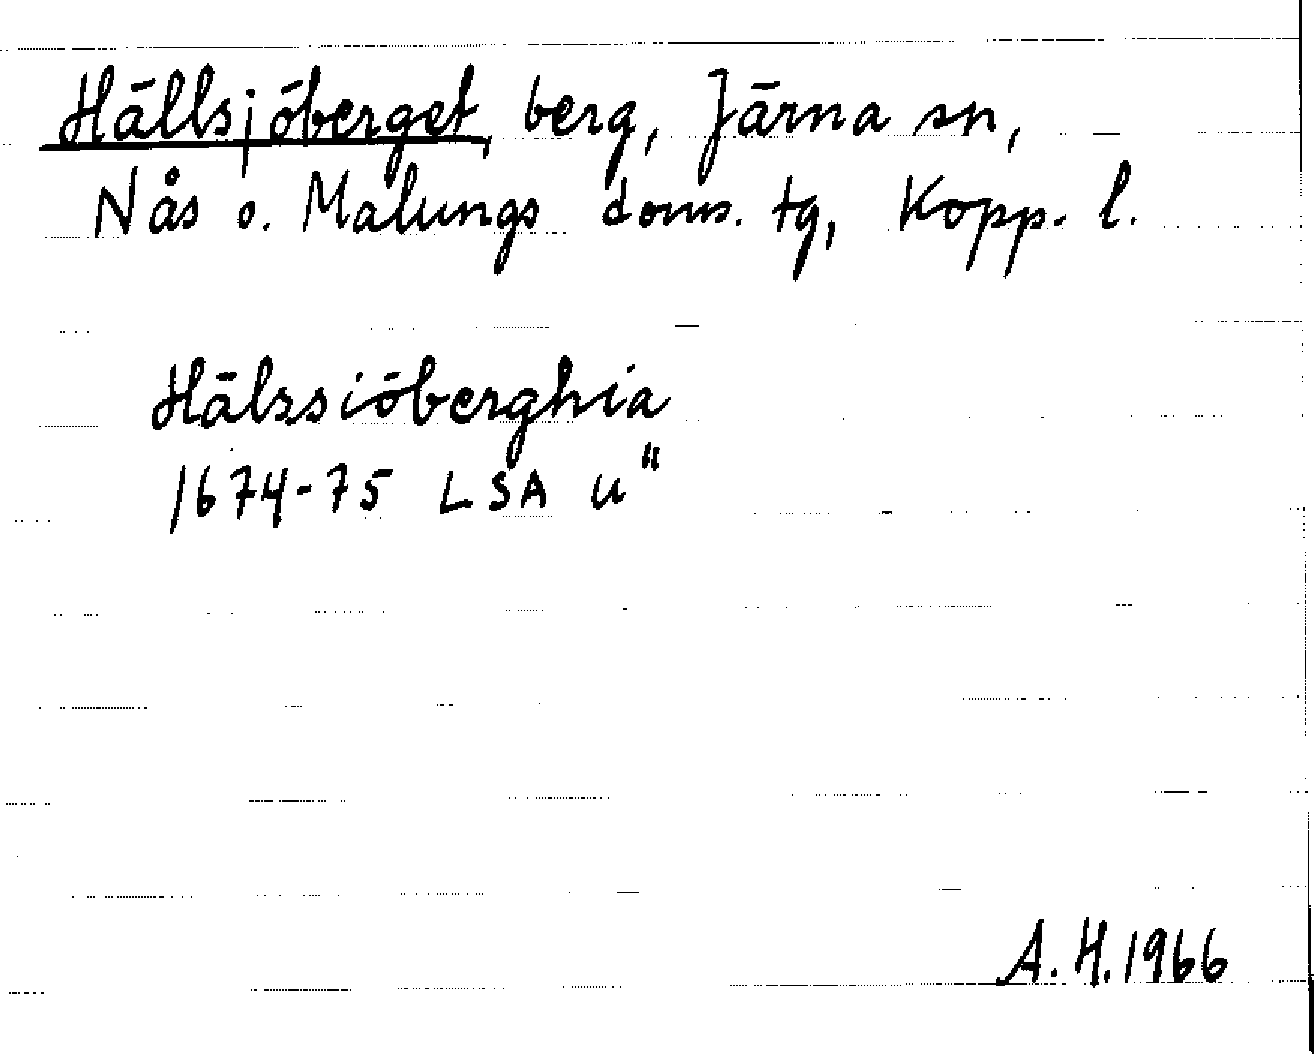 Hällsjöberget, berg, Järna sn,
Nås o. Malungs doms. tg, Kopp. l.
Hälssiöberghia
1674-75 LSA u"
A. H. 1966